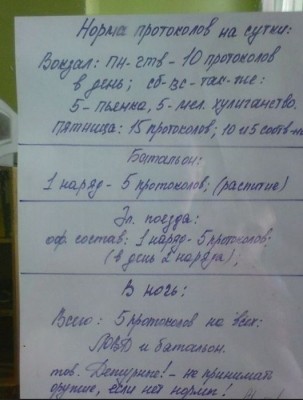 Норма протоколов на сутки:
Вокзал: пн-чтв - 10 протоколов
в день; сб-вс-так-же:
5-пьянка, 5-мел. хулиганство.
Пятница: 15 протоколов; 10 и 5 соотв-но
Батальон:
1 наряд - 5 протоколов; (распитие)
Эл. поезда:
оф. состав; 1 наряд - 5 протоколов
(в день 2 наряда);
В ночь:
Всего: 5 протоколов на всех:
ЛОВД и батальон.
тов. Дежурные! - не принимать
оружие, если нет нормы!